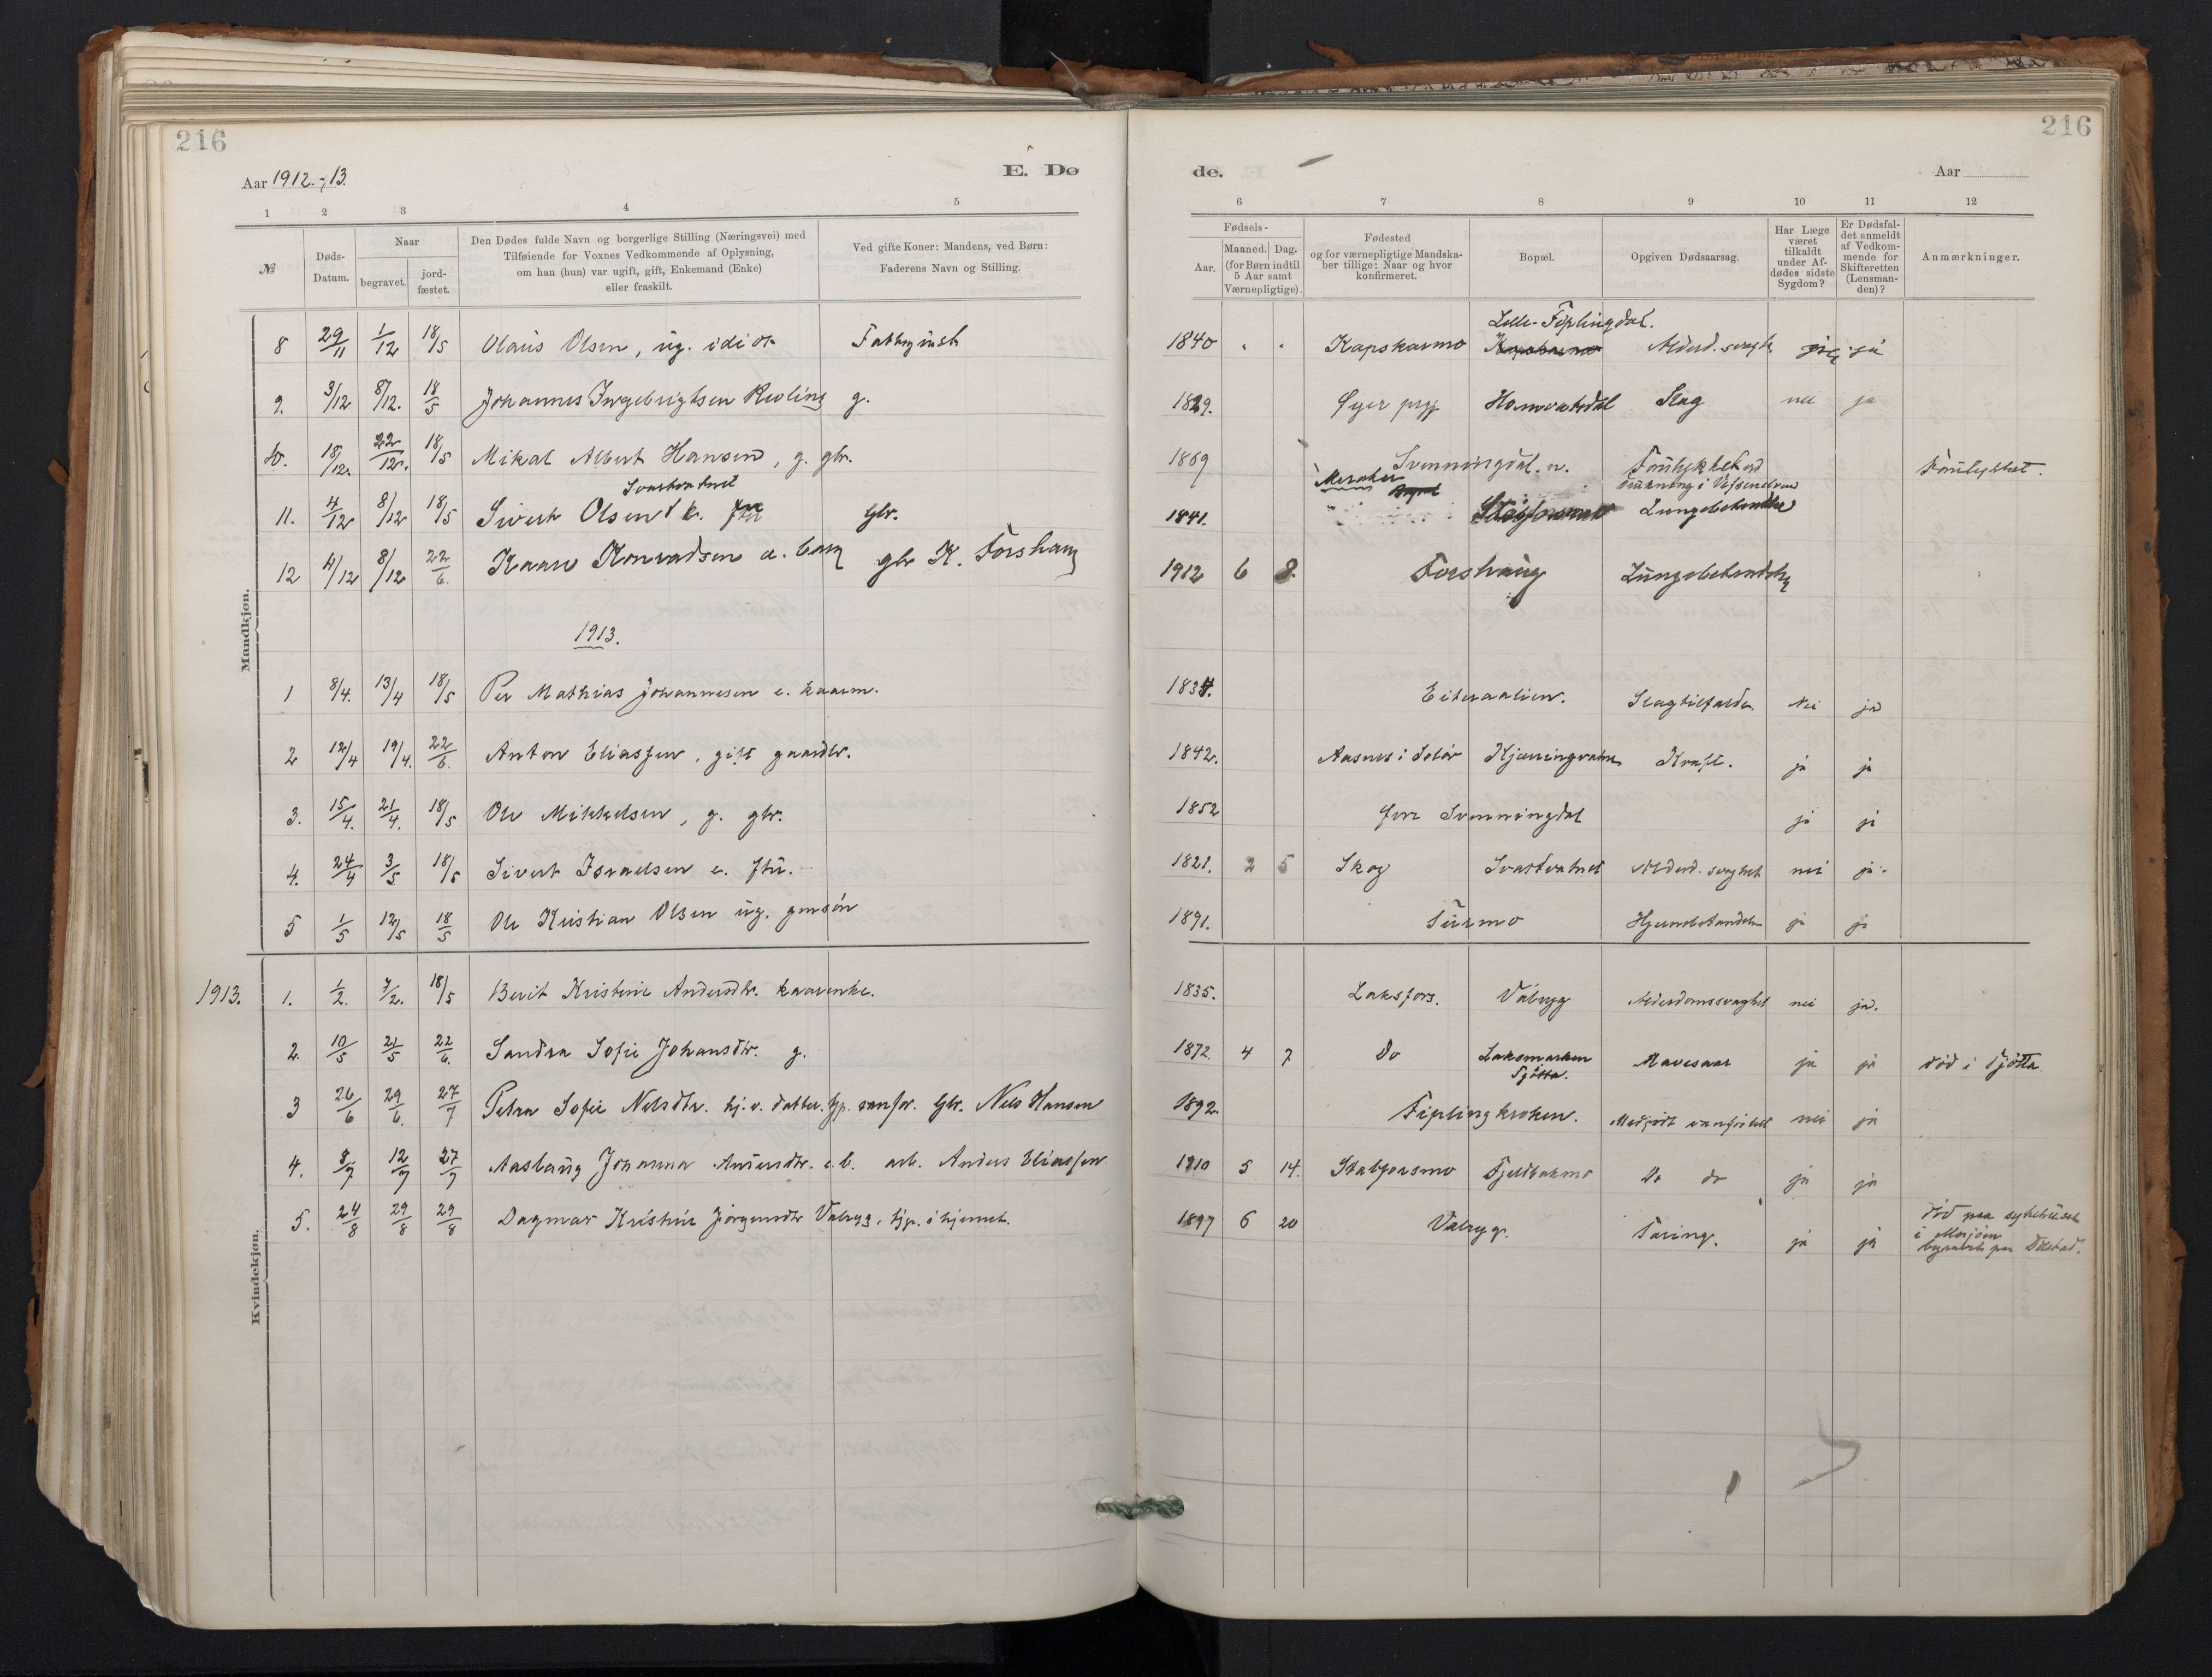 216
216
Aar 1912.-13.
E. Dø
de.
Aar
1 2 3 4 5 6 7 8 9 10 11 12
№
Døds-Datum.
Naar
begravet.
jord-fæstet.
Den Dødes fulde Navn og borgerlige Stilling (Næringsvei) med
Tilføiende for Voxnes Vedkommende af Oplysning,
om han (hun) var ugift, gift, Enkemand (Enke)
eller fraskilt.
Ved gifte Koner: Mandens, ved Børn:
Faderens Navn og Stilling.
Fødsels-
Aar.
Maaned. Dag.
(for Børn indtil
5 Aar samt
Værnepligtige).
Fødested
og for værnepligtige Mandska-
ber tillige: Naar og hvor
konfirmeret.
Bopæl.
Opgiven Dødsaarsag.
Har Læge
været
tilkaldt
under Af-
dødes sidste
Sygdom?
Er Dødsfal-
det anmeldt
af Vedkom-
mende for
Skifteretten
(Lensman-
den)?
Anmærkninger.
Mandkjøn.
Lille-Fiplingdal.
8 29/11 1/12 18/5 Olaus Olsen, ug. idiot 1840 Kapskarmo Kapskarmo Alderd. svagh. ja
9. 3/12 8/12. 18/5 Johannes Ingebrigtsen g. 1829. Øyer prgj Slag nei ja
10. 18/12. 22/12. 18/5 Mikal Albert Hansen, g. gbr. 1869 Svenningdal. n.
Svartvatnet
Meraker
11. 4/12 8/12 18/5 Sivert Olsen gbr. 1841. Lungebetændelse
12 4/12 8/12 22/6. Kaare Konradsen gbr K. Forshaug 1912 6 8. Forshaug Lungebetendelse
1913.
1 8/4. 13/4 18/5 Per Mathias Johannesen e. kaarm. 1834. Eiteraalien. Slagtilfælde. nei ja
2 12/4 19/4. 22/6. Anton Eliassen, gift gaardbr. 1842. Aasnes i Solør Kjerringvatn Kræft. ja ja
3. 15/4. 21/4. 18/5 Ole Mikkelsen, g. gbr. 1852 Svenningdal ja ja
4. 24/4 3/5 18/5 Sivert Israelsen e. 1821. 2 5 Skog Svartvatnet Alderd. svaghet nei ja.
5 1/5 12/5 18/5 Ole Kristian Olsen ug. 1891. Turmo Hjernebetændelse ja ja
Kvindekjøn.
1913. 1. 1/2. 7/2. 18/5 Berit Kristine Andersdtr. kaarenke. 1835. Laksfors. Valryg Alderdomssvaghet nei ja.
2. 10/5 21/5 22/6. Sandra Sofie Johansdtr. g. 1872. 4 7 Do Laksmarken Mavesaar ja ja død i Tjøtta
Tjøtta.
3 26/6 29/6. 27/7 Petra Sofie Nelsdtr. hj. v. datter. vanfør. Gbr. Nels Hansen 1892. Fiplingkroken. Medfødt vanførhet nei ja
4. 8/7 12/7 27/7 Aaslaug Johanna Andersdtr. e. b. arb. Anders Eliassen 1910 5 14. Stabforsmo Fjeldbakmo Do do ja ja
5. 24/8 29/8 29/8 Dagmar Kristine Jørgensdtr Valryg, hjp. i hjemmet. 1897 6 20 Valryg. Tæring. ja ja død paa sykehuset
i Mosjøen
begravet paa Dolstad.